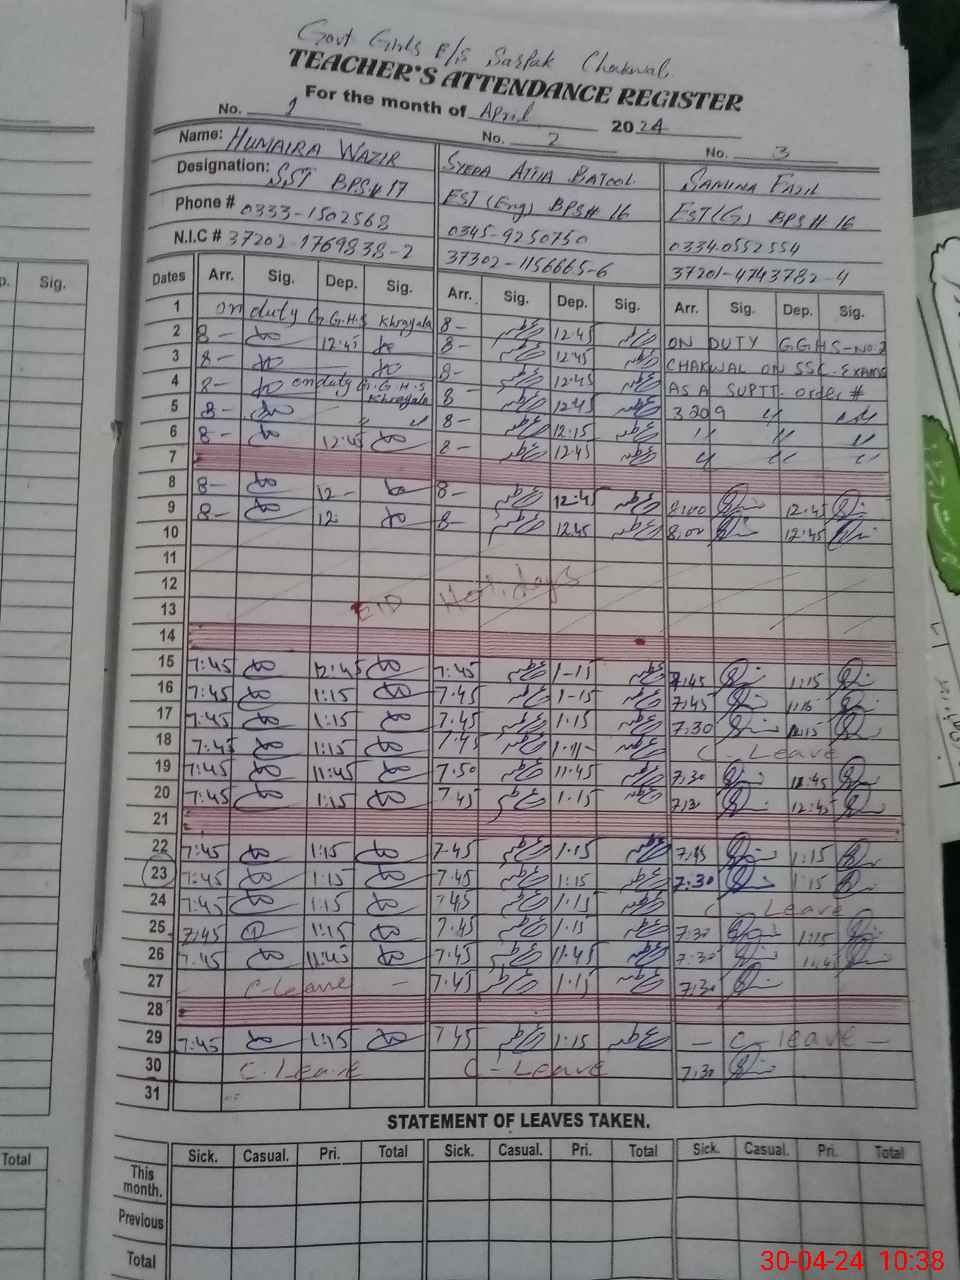 Govt Girls E/S Saspak Chakwal
TEACHER'S ATTENDANCE REGISTER
For the month of April 2024
No. 1 No. 2 No. 3
Name: HUMAIRA WAZIR SYEDA ATIIA BATOOL SAMINA FAZIL
Designation: SST BPS# 17 EST (Eng) BPS# 16 EST(G) BPS# 16
Phone # 0333-1502568 0345-9250750 0334.0552554
N.I.C # 37202-1769838-2 37302-1156665-6 37201-4743782-4
Dates Arr. Sig. Dep. Sig. Arr. Sig. Dep. Sig. Arr. Sig. Dep. Sig.
1 on duty G.G.H.S Khrayala 8- 12:45 ON DUTY G.G.HS-No.2
2 8- 12:45 8- 12:45 CHAKWAL ON SSC. EXAMS
3 8- 8- 12:45 AS A SUPTT. order #
4 8- on duty G.G.H.S Khrayala 8- 12:45 3209 " "
5 8- " " 8- 12:15 " " "
6 8- 12:45 8- 12:45 " " "
7
8 8- 12- 8- 12:45 8:00 12:45
9 8- 12: 8- 12:45 8:00 12:45
10
11
12 EID Holidays
13
14
15 7:45 12:45 7:45 1-15 7:45 1:15
16 7:45 1:15 7.45 1-15 7:45 1:15
17 7:45 1:15 7.45 1.15 7.30
18 7:45 1:15 7.45 C-Leave
19 7:45 11:45 7.50 11.45 7.30
20 7:45 1:15 7.45 1.15 12:45
21
22 7:45 1:15 7.45 1.15 7:45 1:15
23 7:45 1:15 7.45 1:15 7:30 1:15
24 7:45 1:15 7.45 1.15 C- Leave
25 7:45 1:15 7.45 1.15 7:30 1:15
26 7.45 11:45 7:45 11.45 7:30
27 C-leave - 7.45 1.15 7:30
28
29 7:45 1:15 7.45 1:15 - C-leave -
30 C.Leave C-Leave 7:30
31
STATEMENT OF LEAVES TAKEN.
Sick. Casual. Pri. Total Sick. Casual. Pri. Total Sick. Casual. Pri. Total
This month.
Previous
Total
p. Sig.
Total
30-04-24 10:38